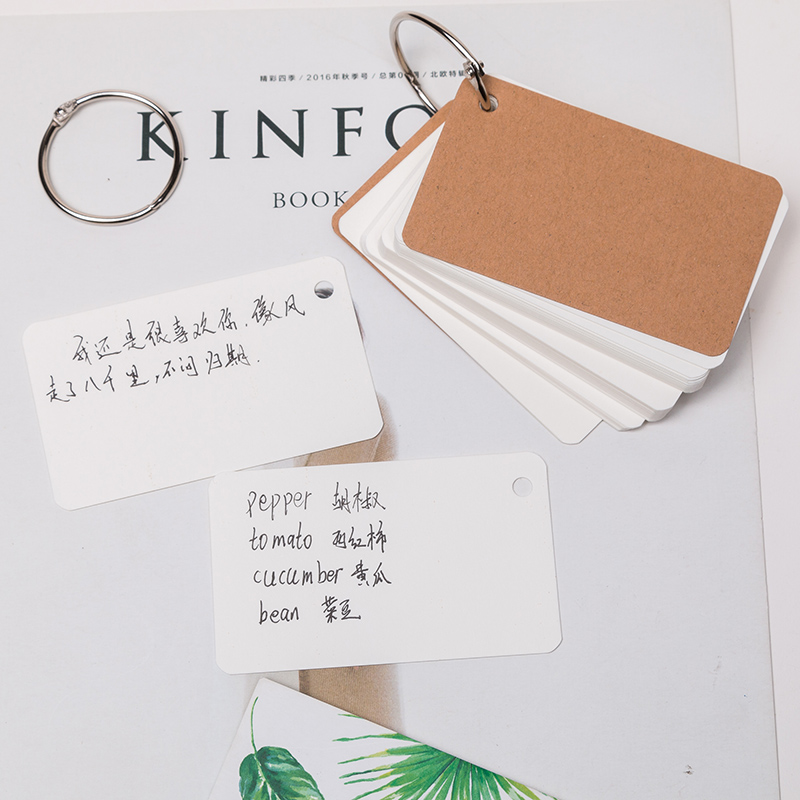 精彩四季 / 2016年秋季号 / 总第0 / 北欧特
KINFO
BOOK
我还是很喜欢你,像风
走了八千里,不问归期.
pepper 胡椒
tomato 西红柿
cucumber 黄瓜
bean 菜豆